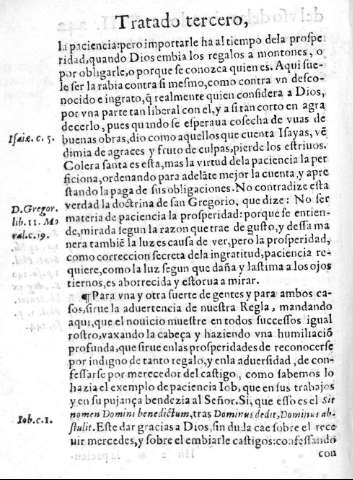 Tratado tercero,
la paciencia: pero importarle ha al tiempo dela prospe
ridad, quando Dios embia los regalos a montones, o
por obligarle, o porque se conozca quien es. Aqui sue-
le ser la rabia contra si mesmo, como contra vn desco-
nocido e ingrato, q̃ realmente quien considera a Dios,
por vna parte tan liberal con el, y a si tan corto en agra
decerlo, pues quando se esperaua cosecha de vuas de
Isaiæ. c. 5.
buenas obras, dio como aquellos que cuenta Isayas, vē
dimia de agraces y fruto de culpas, pierde los estriuos.
Colera santa es esta, mas la virtud dela paciencia la per
ficiona, ordenando para adelāte mejor la cuenta, y apre
stando la paga de sus obligaciones. No contradize esta
D. Gregor.
lib. 11. Mo
ral. c. 19.
verdad la doctrina de san Gregorio, que dize: No ser
materia de paciencia la prosperidad: porque se entien-
de, mirada segun la razon que trae de gusto, y dessa ma
nera tambiē la luz es causa de ver, pero la prosperidad,
como correccion secreta dela ingratitud, paciencia re-
quiere, como la luz segun que daña y lastima a los ojos
tiernos, es aborrecida y estorua a mirar.
¶Para vna y otra suerte de gentes y para ambos ca-
sos, sirue la aduertencia de nuestra Regla, mandando
aqui, que el nouicio muestre en todos successos igual
rostro, vaxando la cabeça y haziendo vna humiliació
profunda, que sirue enlas prosperidades de reconocerse
por indigno de tanto regalo, y enla aduersidad, de con-
fessarse por merecedor del castigo, como sabemos lo
hazia el exemplo de paciencia Iob, que en sus trabajos
y en su pujança bendezia al Señor. Si, que esso es el Sit
Iob. c. 1.
nomen Domini benedictum, tras Dominus dedit, Dominus ab-
stulit. Este dar gracias a Dios, sin duda cae sobre el rece
uir mercedes, y sobre el embiarle castigos: confessando
con